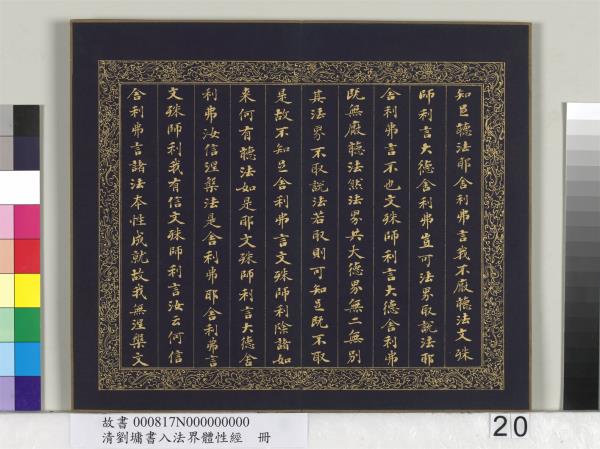 知足聽法耶舍利弗言我不厭聽法文殊
師利言大德舍利弗豈可法界取說法耶
舍利弗言不也文殊師利言大德舍利弗
既無厭聽法然法界共大德界無二無別
其法界不取說法若取則可知足既不取
是故不知足舍利弗言文殊師利除諸如
來何有聽法如是耶文殊師利言大德舍
利弗汝信涅槃法是舍利弗耶舍利弗言
文殊師利我有信文殊師利言汝云何信
舍利弗言諸法本性成就故我無涅槃文
故書 000817N000000000
清劉墉書入法界體性經 冊
20